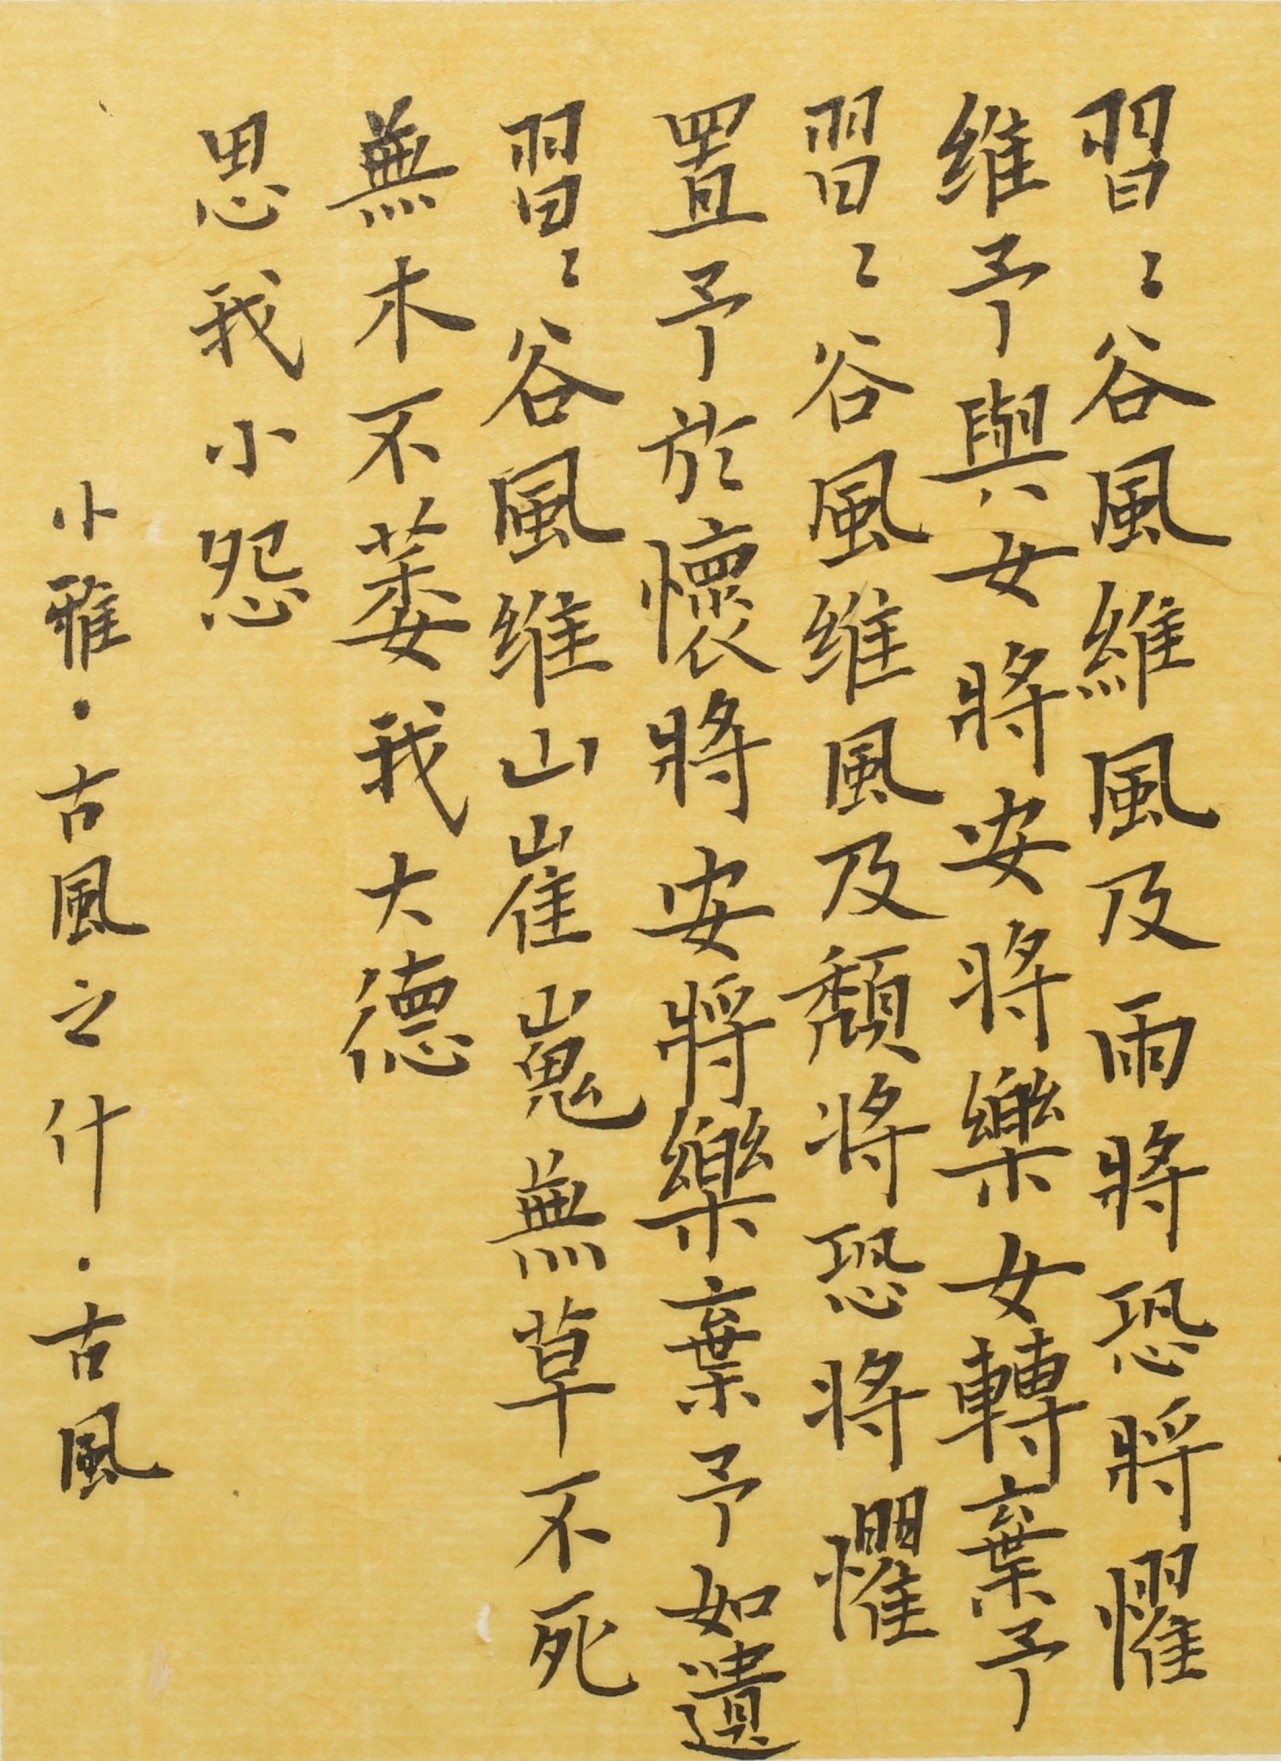 習々谷風維風及雨將恐將懼
維予與女將安將樂女轉棄予
習々谷風維風及頹将恐将懼
置予於懷將安將樂棄予如遺
習々谷風維山崔嵬無草不死
無木不萎我大德
思我小怨
小雅·古風之什·古風